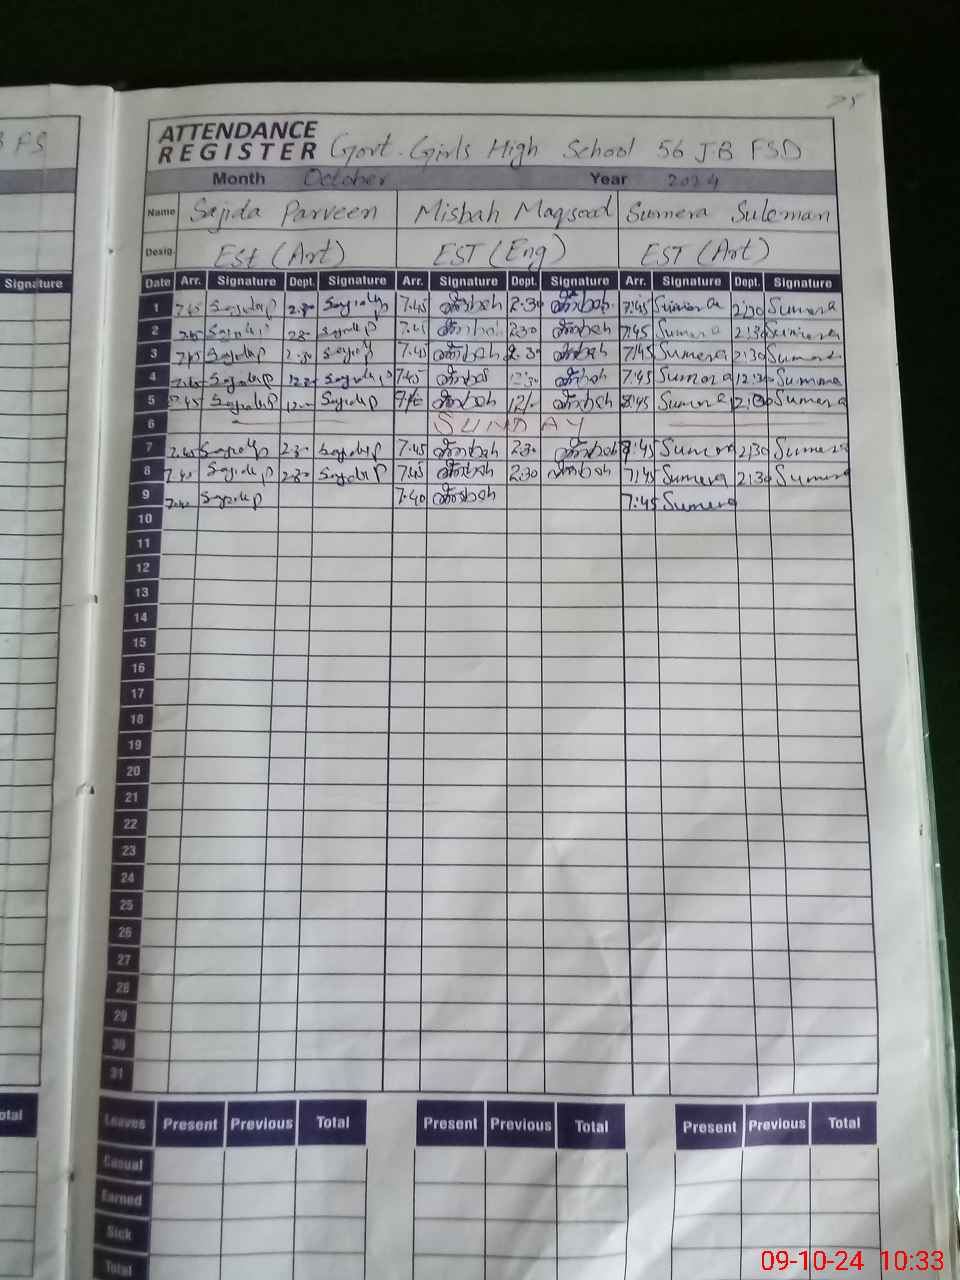 25
S FS
ATTENDANCE
REGISTER Govt. Girls High School 56 JB FSD
Month October Year 2024
Name Sajida Parveen Misbah Maqsood Sumera Suleman
Desig. EST (Art) EST (Eng) EST (Art)
Signature Date Arr. Signature Dept. Signature Arr. Signature Dept. Signature Arr. Signature Dept. Signature
1 7.45 Sajida P 2.30 Sajida P 7.45 Misbah 2.30 Misbah 7:45 Sumera 2:30 Sumera
2 7.45 Sajida P 2.30 Sajida P 7.45 Misbah 2.30 Misbah 7:45 Sumera 2:30 Sumera
3 7.45 Sajida P 2.30 Sajida P 7.45 Misbah 2.30 Misbah 7:45 Sumera 2:30 Sumera
4 7.45 Sajida P 12.30 Sajida P 7.45 Misbah 12.30 Misbah 7:45 Sumera 12:30 Sumera
5 Sajida P Sajida P Misbah 12/- Misbah 8:45 Sumera 12:00 Sumera
6 SUNDAY
7 7.45 Sajida P 2.30 Sajida P 7.45 Misbah 2.30 Misbah 7:45 Sumera 2:30 Sumera
8 7.45 Sajida P 2.30 Sajida P 7.45 Misbah 2.30 Misbah 7:45 Sumera 2:30 Sumera
9 7.40 Sajida P 7.40 Misbah 7:45 Sumera
10
11
12
13
14
15
16
17
18
19
20
21
22
23
24
25
26
27
28
29
30
31
otal Leaves Present Previous Total Present Previous Total Present Previous Total
Casual
Earned
Sick
Total
09-10-24 10:33